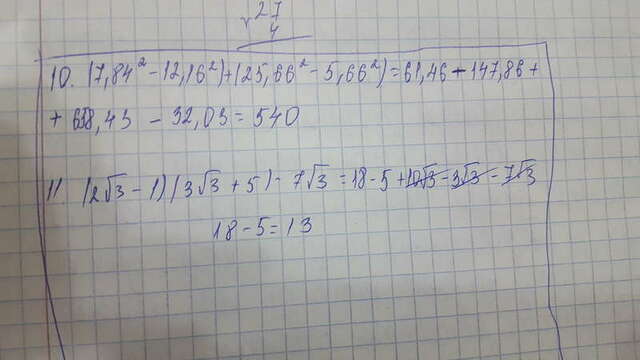 √27
4
10. (7,84² - 12,16²) + (25,86² - 5,66²) = 61,46 + 147,88 +
+ 688,43 - 32,03 = 540
11 (2√3 - 1)(3√3 + 5) - 7√3 = 18 - 5 + 10√3 - 3√3 - 7√3
18 - 5 = 13